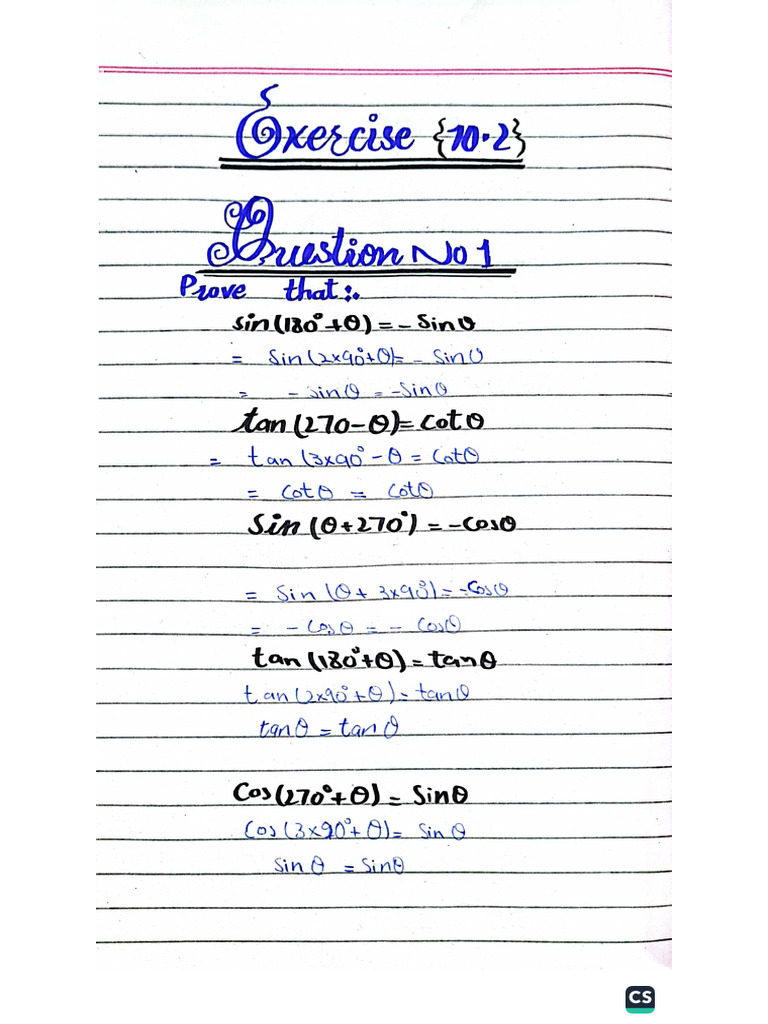 Exercise {10.2}
Question No 1
Prove that:.
sin(180°+θ)=-Sinθ
= Sin(2x90°+θ)=-Sinθ
= -sinθ = -Sinθ
tan(270-θ)=Cotθ
= tan(3x90°-θ = Cotθ
= Cotθ = Cotθ
Sin(θ+270°)=-Cosθ
= Sin(θ+3x90°)=-Cosθ
= -Cosθ = -Cosθ
tan(180°+θ)=tanθ
tan(2x90°+θ)=tanθ
tanθ = tanθ
Cos(270°+θ)=Sinθ
Cos(3x90°+θ)=Sinθ
Sinθ =Sinθ
CS